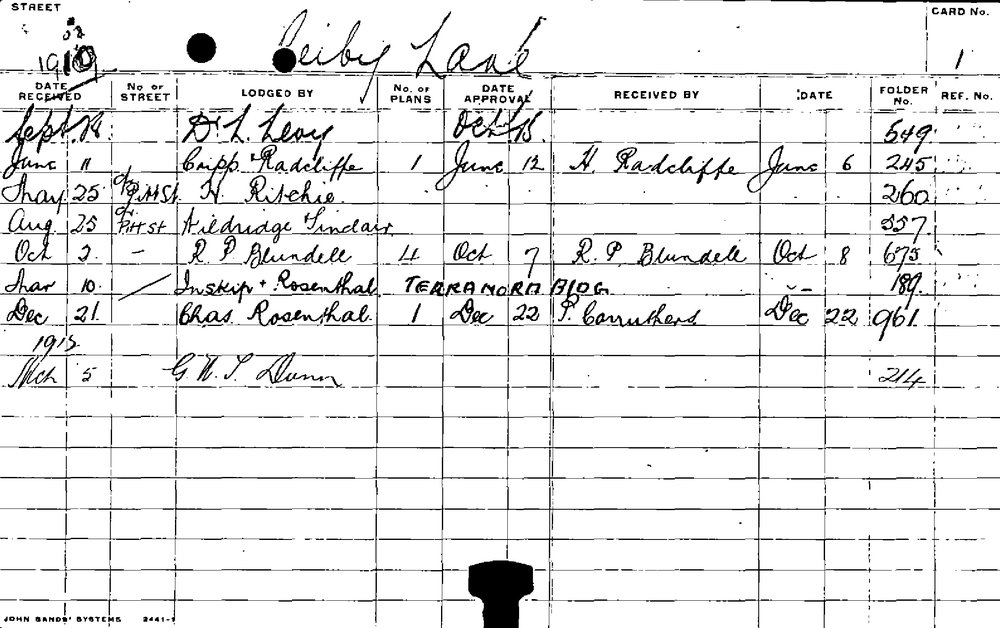 STREET
Reiby Lane
CARD No. 1
1910
DATE RECEIVED No OF STREET LODGED BY No. OF PLANS DATE APPROVAL RECEIVED BY DATE FOLDER No. REF. No.
Sept. D. L. Levy Oct. 15 549
June 11 Cripp & Radcliffe 1 June 12 H. Radcliffe June 6 245
May 25 c/r Pitt St. H. Ritchie. 260
Aug. 25 Pitt St Hildridge & Sinclair. 557
Oct 2. – R. P. Blundell 4 Oct 7 R. P. Blundell Oct 8 675
Mar 10. Inskip + Rosenthal. TERRANORA BLDG 189.
Dec 21. Chas. Rosenthal. 1 Dec 22 P. Carruthers. Dec 22 961.
1913
Mch 5 G. H. S. Dunn 214
JOHN SANDS' SYSTEMS 2441-1